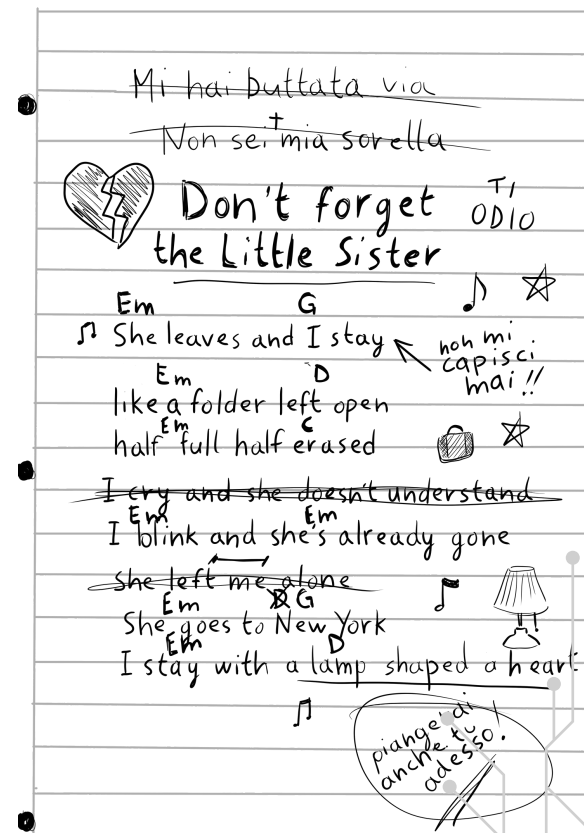 Mi hai buttata via
Non sei mia sorella
Don't forget
the Little Sister
TI
ODIO
Em G
She leaves and I stay
non mi
capisci
mai!!
Em D
like a folder left open
Em C
half full half erased
I cry and she doesn't understand
Em Em
I blink and she's already gone
she left me alone
Em D G
She goes to New York
Em D
I stay with a lamp shaped a heart
piange di
anche tu
adesso!